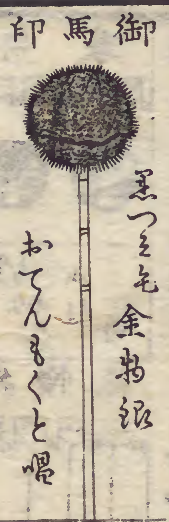 御馬印
黒つミ毛金物銀
おてんもくと唱